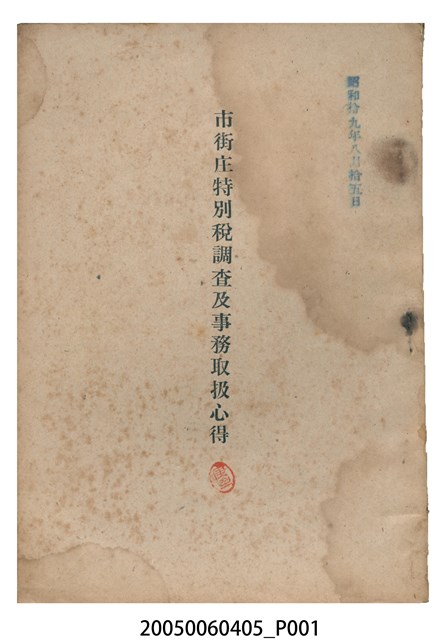 昭和拾九年八月拾五日
市街庄特別税調査及事務取扱心得
20050060405_P001